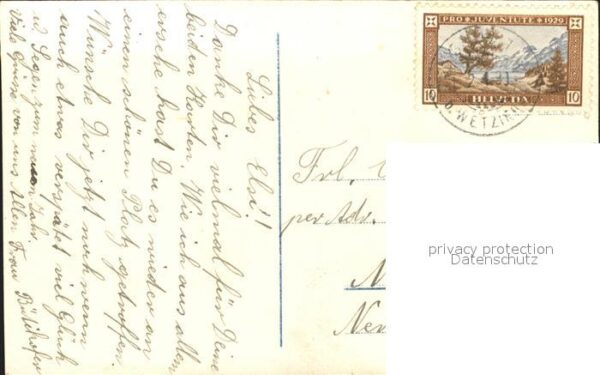 Liebes Elsi!!
Danke Dir vielmal für Deine
beiden Karten. Wie ich aus allem
ersehe hast Du es wieder an
einem schönen Platz getroffen.
Wünsche Dir jetzt noch wenn
auch etwas verspätet viel Glück
u. Segen zum neuen Jahr.
Viele Grüsse von uns Allen Frau
PRO JUVENTUTE 1929
10 HELVETIA 10
WETZIK
Frl.
per Adr.
N
Neu
privacy protection
Datenschutz